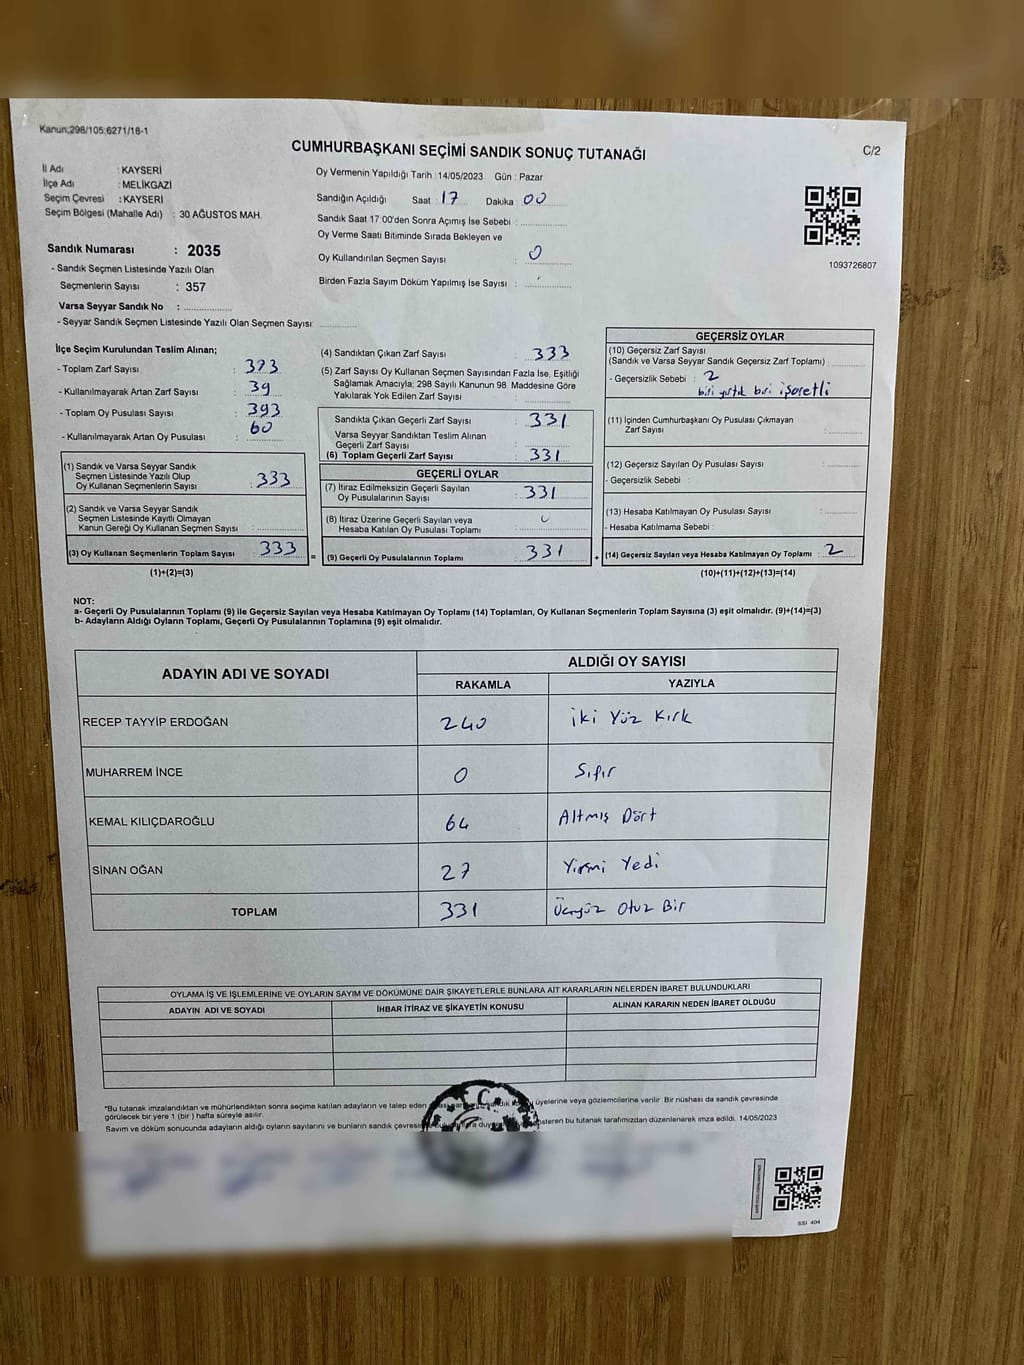 Kanun:298/105;6271/18-1
CUMHURBAŞKANI SEÇİMİ SANDIK SONUÇ TUTANAĞI
C/2
İl Adı : KAYSERİ
İlçe Adı : MELİKGAZİ
Seçim Çevresi : KAYSERİ
Seçim Bölgesi (Mahalle Adı) : 30 AĞUSTOS MAH.
Sandık Numarası : 2035
- Sandık Seçmen Listesinde Yazılı Olan
Seçmenlerin Sayısı : 357
Varsa Seyyar Sandık No :
- Seyyar Sandık Seçmen Listesinde Yazılı Olan Seçmen Sayısı:
Oy Vermenin Yapıldığı Tarih : 14/05/2023 Gün : Pazar
Sandığın Açıldığı Saat : 17 Dakika : 00
Sandık Saat 17 00'den Sonra Açımış İse Sebebi :
Oy Verme Saati Bitiminde Sırada Bekleyen ve
Oy Kullandırılan Seçmen Sayısı : 0
Birden Fazla Sayım Döküm Yapılmış İse Sayısı :
1093726807
İlçe Seçim Kurulundan Teslim Alınan;
- Toplam Zarf Sayısı : 373
- Kullanılmayarak Artan Zarf Sayısı : 39
- Toplam Oy Pusulası Sayısı : 393
- Kullanılmayarak Artan Oy Pusulası : 60
(1) Sandık ve Varsa Seyyar Sandık
Seçmen Listesinde Yazılı Olup
Oy Kullanan Seçmenlerin Sayısı : 333
(2) Sandık ve Varsa Seyyar Sandık
Seçmen Listesinde Kayıtlı Olmayan
Kanun Gereği Oy Kullanan Seçmen Sayısı :
(3) Oy Kullanan Seçmenlerin Toplam Sayısı : 333
(1)+(2)=(3)
(4) Sandıktan Çıkan Zarf Sayısı : 333
(5) Zarf Sayısı Oy Kullanan Seçmen Sayısından Fazla İse, Eşitliği
Sağlamak Amacıyla; 298 Sayılı Kanunun 98. Maddesine Göre
Yakılarak Yok Edilen Zarf Sayısı :
Sandıkta Çıkan Geçerli Zarf Sayısı : 331
Varsa Seyyar Sandıktan Teslim Alınan
Geçerli Zarf Sayısı :
(6) Toplam Geçerli Zarf Sayısı : 331
GEÇERLİ OYLAR
(7) İtiraz Edilmeksizin Geçerli Sayılan
Oy Pusulalarının Sayısı : 331
(8) İtiraz Üzerine Geçerli Sayılan veya
Hesaba Katılan Oy Pusulası Toplamı : 0
= (9) Geçerli Oy Pusulalarının Toplamı : 331 +
GEÇERSİZ OYLAR
(10) Geçersiz Zarf Sayısı
(Sandık ve Varsa Seyyar Sandık Geçersiz Zarf Toplamı) :
- Geçersizlik Sebebi : 2
biri yırtık biri işaretli
(11) İçinden Cumhurbaşkanı Oy Pusulası Çıkmayan
Zarf Sayısı :
(12) Geçersiz Sayılan Oy Pusulası Sayısı :
- Geçersizlik Sebebi :
(13) Hesaba Katılmayan Oy Pusulası Sayısı :
- Hesaba Katılmama Sebebi :
(14) Geçersiz Sayılan veya Hesaba Katılmayan Oy Toplamı : 2
(10)+(11)+(12)+(13)=(14)
NOT:
a- Geçerli Oy Pusulalarının Toplamı (9) ile Geçersiz Sayılan veya Hesaba Katılmayan Oy Toplamı (14) Toplamları, Oy Kullanan Seçmenlerin Toplam Sayısına (3) eşit olmalıdır. (9)+(14)=(3)
b- Adayların Aldığı Oyların Toplamı, Geçerli Oy Pusulalarının Toplamına (9) eşit olmalıdır.
ADAYIN ADI VE SOYADI
ALDIĞI OY SAYISI
RAKAMLA YAZIYLA
RECEP TAYYİP ERDOĞAN 240 İki Yüz Kırk
MUHARREM İNCE 0 Sıfır
KEMAL KILIÇDAROĞLU 64 Altmış Dört
SİNAN OĞAN 27 Yirmi Yedi
TOPLAM 331 Üçyüz Otuz Bir
OYLAMA İŞ VE İŞLEMLERİNE VE OYLARIN SAYIM VE DÖKÜMÜNE DAİR ŞİKAYETLERLE BUNLARA AİT KARARLARIN NELERDEN İBARET BULUNDUKLARI
ADAYIN ADI VE SOYADI İHBAR İTİRAZ VE ŞİKAYETİN KONUSU ALINAN KARARIN NEDEN İBARET OLDUĞU
*Bu tutanak imzalandıktan ve mühürlendikten sonra seçime katılan adayların ve talep eden üyelerine veya gözlemcilerine verilir. Bir nüshası da sandık çevresinde
görülecek bir yere 1 (bir) hafta süreyle asılır.
Sayım ve döküm sonucunda adayların aldığı oyların sayılarını ve bunların sandık çevresi gösteren bu tutanak tarafımızdan düzenlenerek imza edildi. 14/05/2023
SSI 404